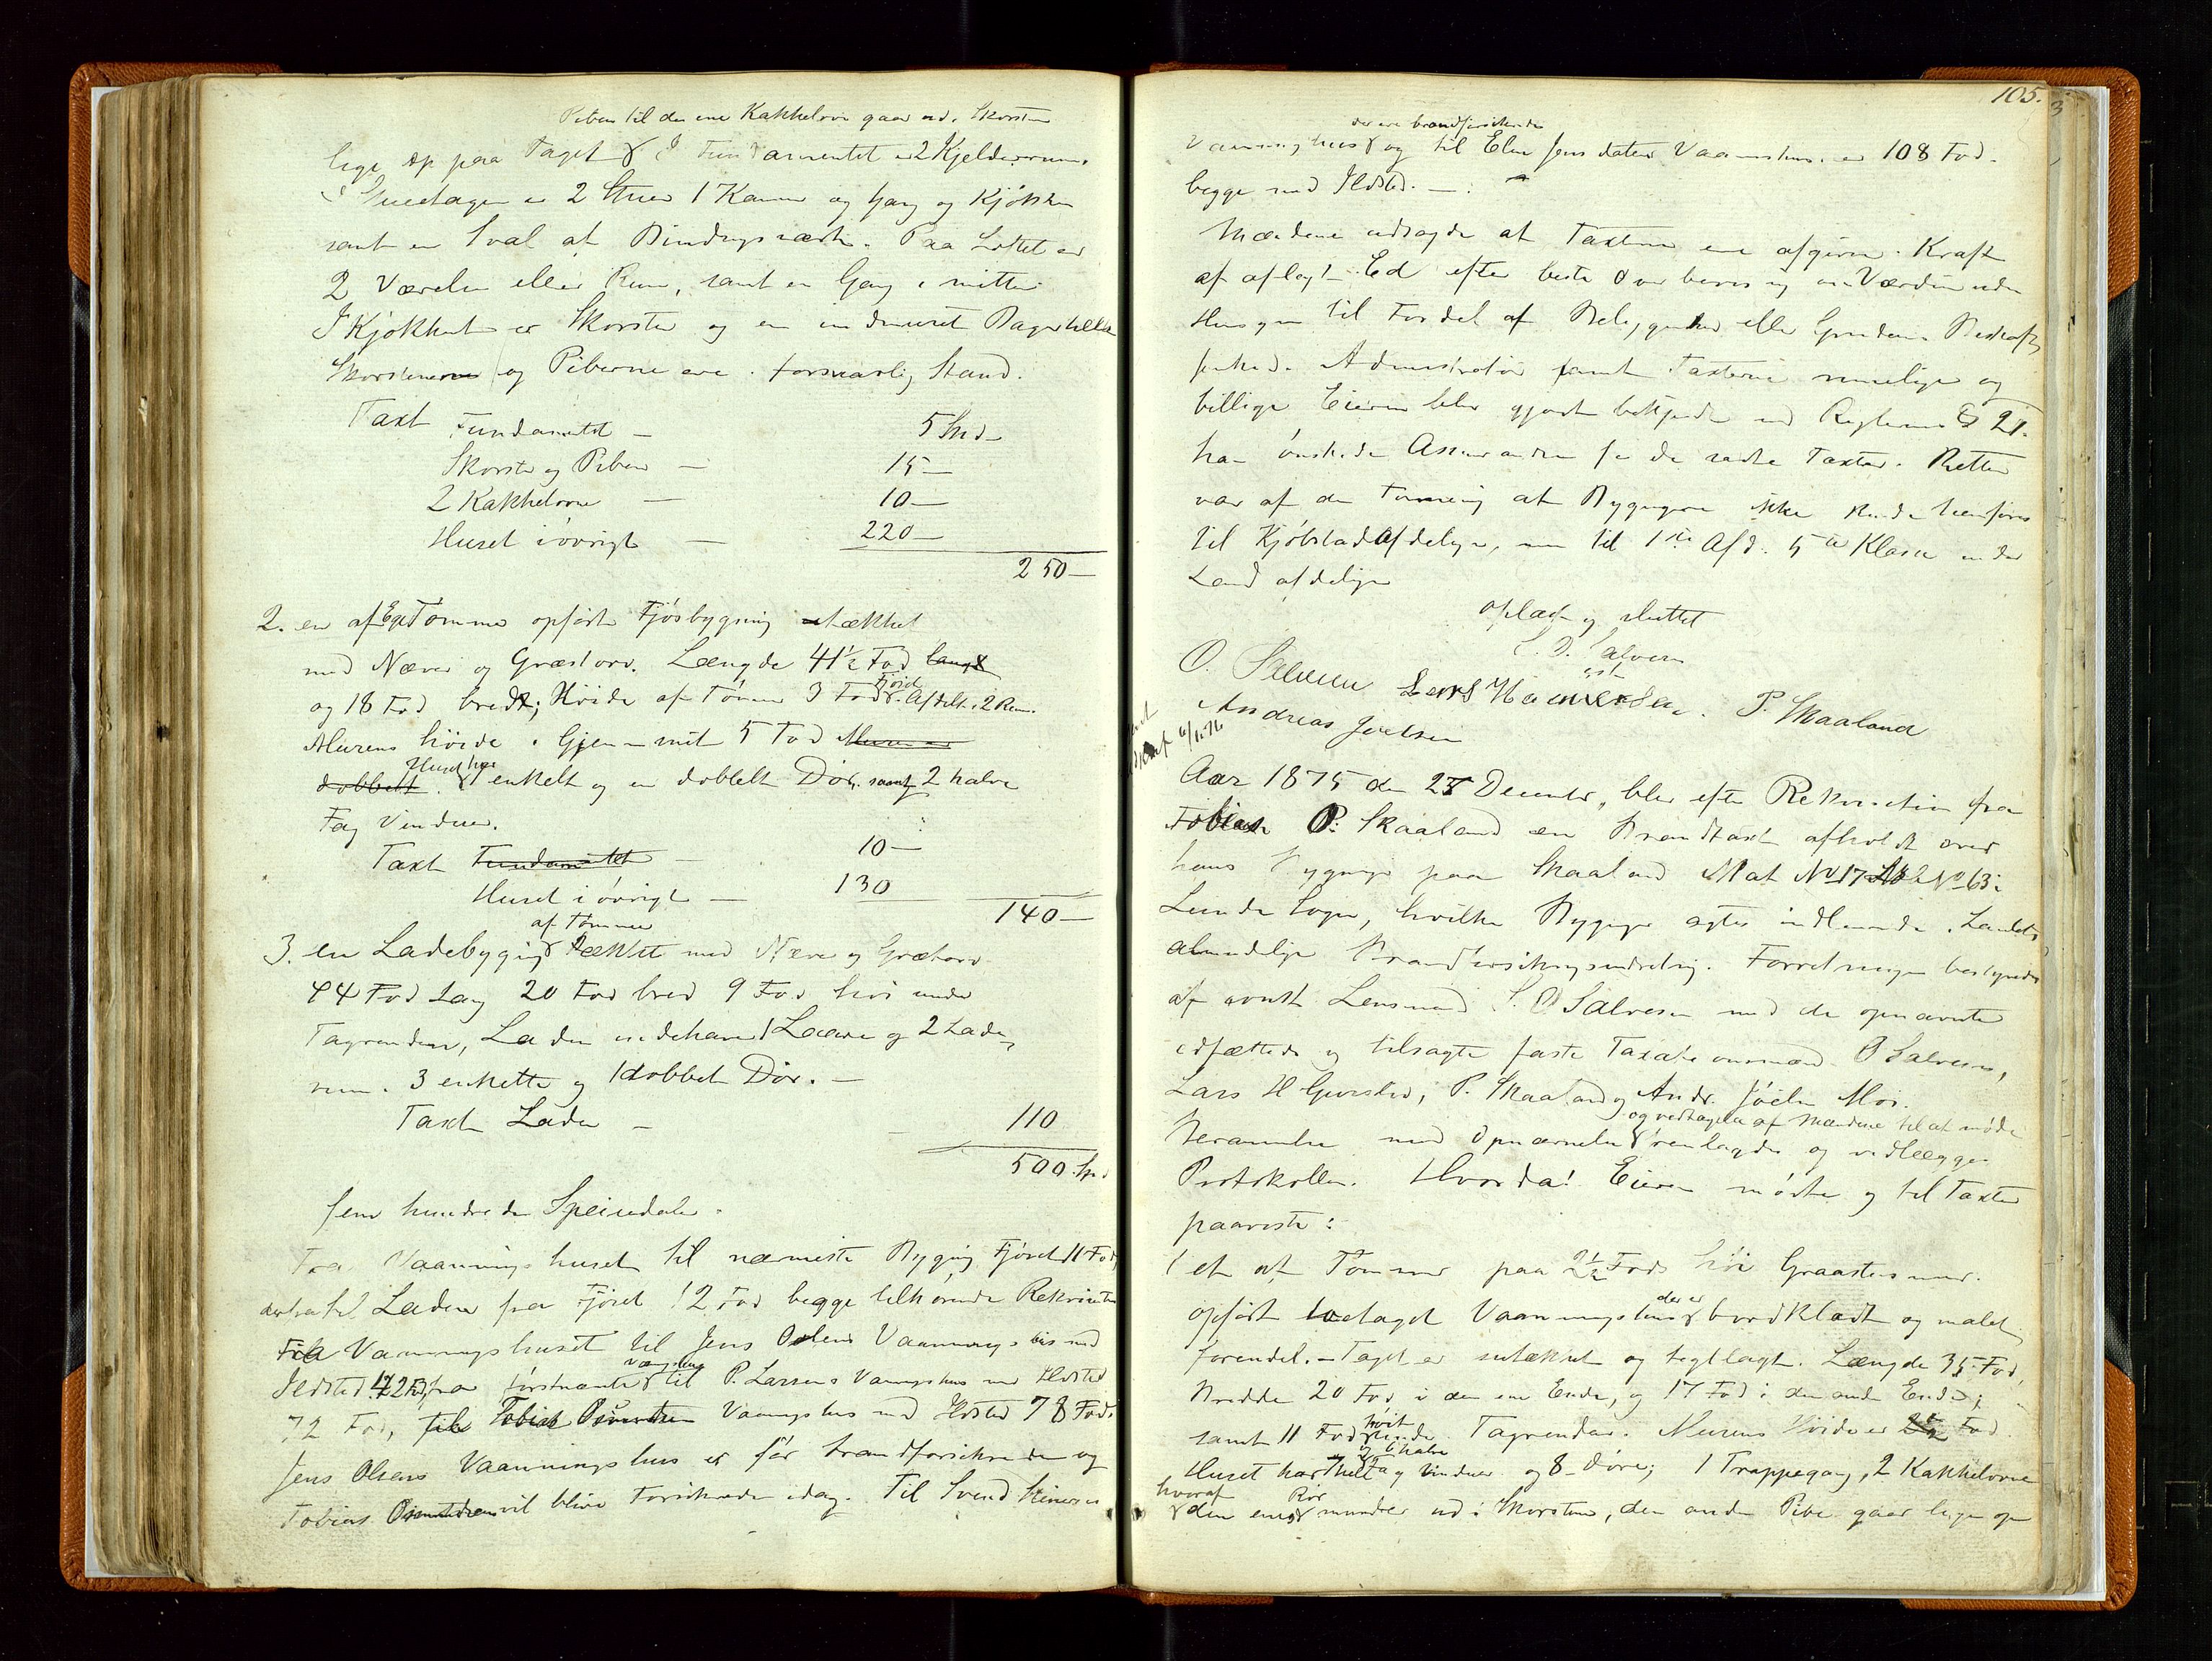 Piben til den ene Kakkelovn gaar ud i Skorsten
lige op paa Taget I Fundamentet er 2 Kjelderrum.
I Stueetagen er 2 Stuer 1 Kammer og Gang og Kjøkken
samt en Sval af Bindingsværk. Paa Loftet er
2 Værelser eller Rum, samt en Gang i mitten
I Kjøkkenet er Skorsten og en indmuret Bagerhelle
Skorstenene og Piberne ere i forsvarlig Stand.
Taxt Fundamentet — 5 Spd
Skorsten og Piben — 15 —
2 Kakkelovne — 10 —
Huset i øvrigt — 220 —
250 —
2. en af Ege Tømmer opført Fjøsbygning tækket
med Næver og Græstorv. Længde 41½ Fod langt
og 18 Fod bredt; Høide af Tømmer 9 Fod Fjøset Afdelt i 2 Rum.
Murens høide i Gjennemsnit 5 Fod
dobbelt. Huset har 1 enkelt og en dobbelt Dør, samt 2 halve
Fag Vinduer.
Taxt Fundamentet — 10 —
Huset i øvrigt — 130
140 —
af Tømmer
3. en Ladebygning tækket med Næver og Græstorv
44 Fod Lang 20 Fod bred 9 Fod høi under
Tagrenden, Laden indehaver 1 Laave og 2 Lade
rum. 3 enkelte og 1 dobbelt Dør. —
Taxt Laden — 110
500 Spd
fem hundrede Speciedaler.
Fra Vaaningshuset til nærmeste Bygning Fjøset 11 Fod,
derfra til Laden fra Fjøset 12 Fod begge tilhørende Rekvirenten
Fra Vaaningshuset til Jens Olsens Vaaningshus med
Ildsted 42 Fod, fra førstnævnte Vaaningshus til P. Larsens Vaaningshus med Ildsted
72 Fod, til Tobias Vaaningshus med Ildsted 78 Fod.
Jens Olsens Vaaningshus er før brandforsikrede og
Tobias vil blive Forsikrede idag. Til Svend
105.
der ere brandforsikrede
Vaaningshus og til Elen Jensdatters Vaaningshus er 108 Fod.
begge med Ildsted. —
Mændene udsagde at Taxterne ere afgivne i Kraft
af aflagt Ed efter beste Overbevisning om Værdien uden
Hensyn til Fordel af Beliggenhed eller Grundens Beskaf-
fenhed. Administrator fandt Taxterne rimelige og
billige Eieren blev gjort bekjendt med Reglerne § 21.
han ønskede Assurancen for de satte Taxter. Retten
var af den Formening at Bygningerne ikke kunde henføres
til Kjøbstadafdelingen, men til 1ste Afd. 5te Klasse under
Landafdelingen
oplæst og sluttet
S. O. Salvesen
O. Salvesen Lars Haaversen. P. Skaaland
Andreas Joelsen
Aar 1875 den 27 December, blev efter Rekvisition fra
Tobias P. Skaaland en Brandtaxt afholdt over
hans Bygninger paa Skaaland Mat No 17 Løbe No 63 i
Lunde Sogn, hvilke Bygninger agtes indlemmede i Landets
almindelige Brandforsikringsindretning. Forretningen bestyredes
af const. Lensmand S. O Salvesen med de opnævnte
edfæstede og tilsagte faste Taxationsmænd O Salvesen,
Lars H Gyersted, P. Skaaland og Andr. Joelsen Moi.
og vedtagelse af Mændene til at møde
Berammelse med Opnævnelse fremlagdes og vedlægges
Protokollen. Hvorda! Eieren mødte og til Taxten
paaviste:
1 et af Tømmer paa 2½ Fods høi Graastensmur
opført toetages Vaaningshus der er bordklædt og malet
forendel. — Taget er sutækket og tegllagt. Længde 35 Fod,
Bredde 20 Fod i den ene Ende, og 17 Fod i den anden Ende;
samt 11 Fod høit under Tagrenden. Murens Høide er 2½ Fod
Huset har hele og 6 halve Fag Vinduer og 8 Døre; 1 Trappegang, 2 Kakkelovne
hvoraf den enes Rør munder ud i Skorstenen, den anden Pibe gaar lige op